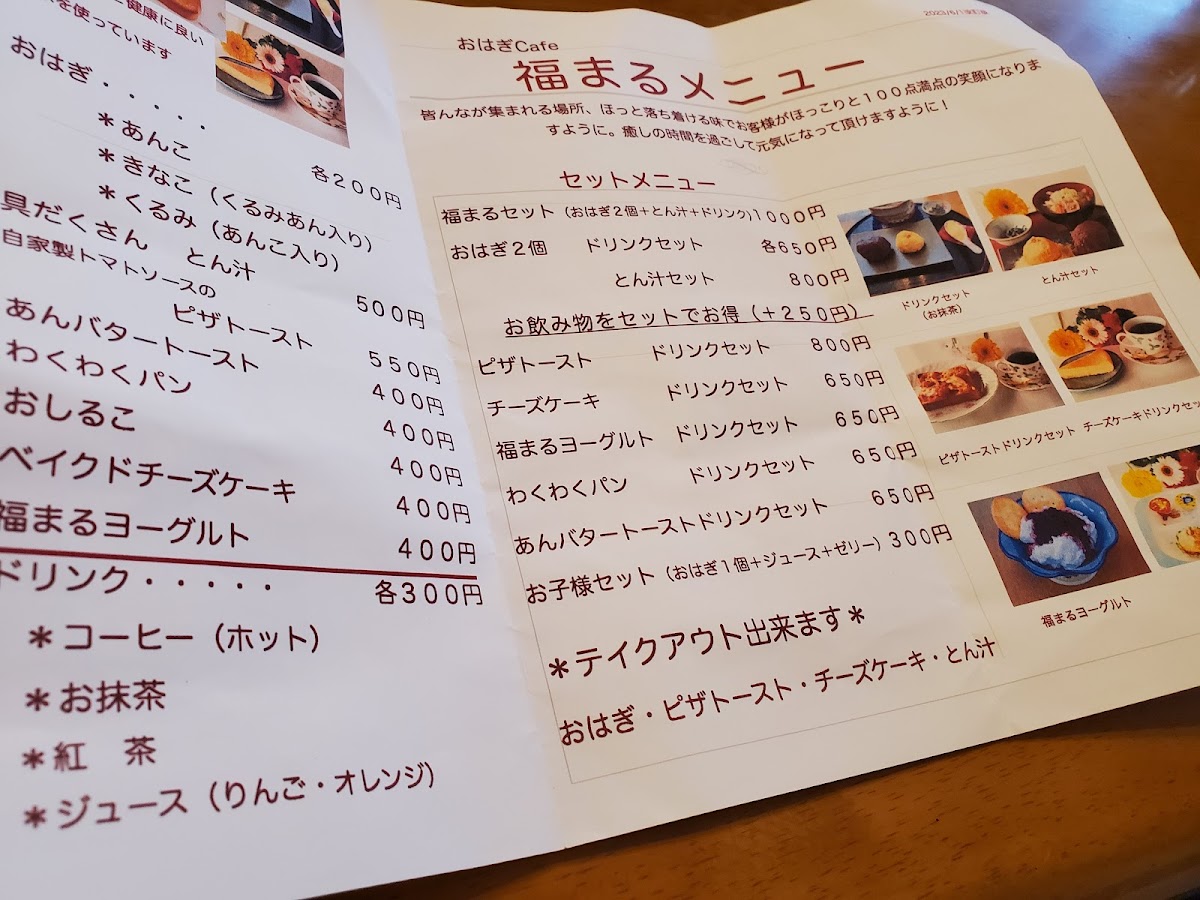 健康に良い
を使っています
おはぎ・・・・・
各200円
＊あんこ
＊きなこ（くるみあん入り）
＊くるみ（あんこ入り）
具だくさん　とん汁　500円
自家製トマトソースの
ピザトースト　550円
あんバタートースト　400円
わくわくパン　400円
おしるこ　400円
ベイクドチーズケーキ　400円
福まるヨーグルト　400円
ドリンク・・・・・　各300円
＊コーヒー（ホット）
＊お抹茶
＊紅　茶
＊ジュース（りんご・オレンジ）
おはぎCafe
福まるメニュー
皆んなが集まれる場所、ほっと落ち着ける味でお客様がほっこりと100点満点の笑顔になりま
すように。癒しの時間を過ごして元気になって頂けますように！
セットメニュー
福まるセット（おはぎ2個+とん汁+ドリンク）1000円
おはぎ2個　ドリンクセット　各650円
とん汁セット　800円
お飲み物をセットでお得（+250円）
ピザトースト　ドリンクセット　800円
チーズケーキ　ドリンクセット　650円
福まるヨーグルト　ドリンクセット　650円
わくわくパン　ドリンクセット　650円
あんバタートーストドリンクセット　650円
お子様セット（おはぎ1個+ジュース+ゼリー）300円
＊テイクアウト出来ます＊
おはぎ・ピザトースト・チーズケーキ・とん汁
ドリンクセット
（お抹茶）
とん汁セット
ピザトーストドリンクセット
チーズケーキドリンクセッ
福まるヨーグルト